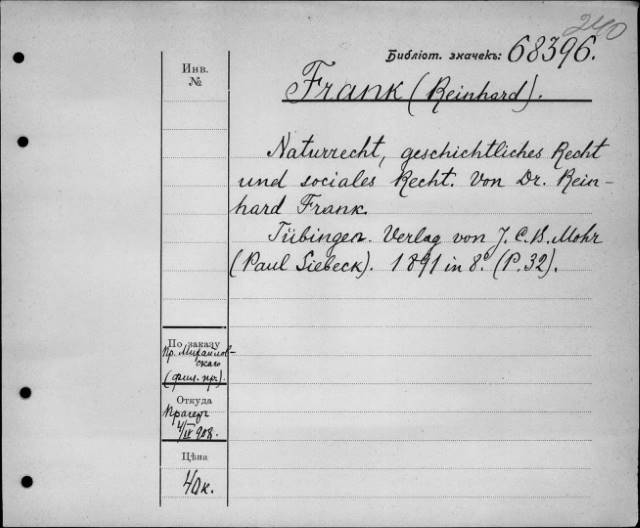 240
Библіот. значекъ: 68396.
Инв.
№
Frank (Reinhard).
Naturrecht, geschichtliches Recht
und sociales Recht. Von Dr. Rein-
hard Frank.
Tübingen. Verlag von J. C. B. Mohr
(Paul Siebeck). 1891 in 8° (P. 32).
По заказу
Пр. Михайлов-
скаго
(фил. пр.).
Откуда
Прагеръ
4/IV 908.
Цѣна
40 к.